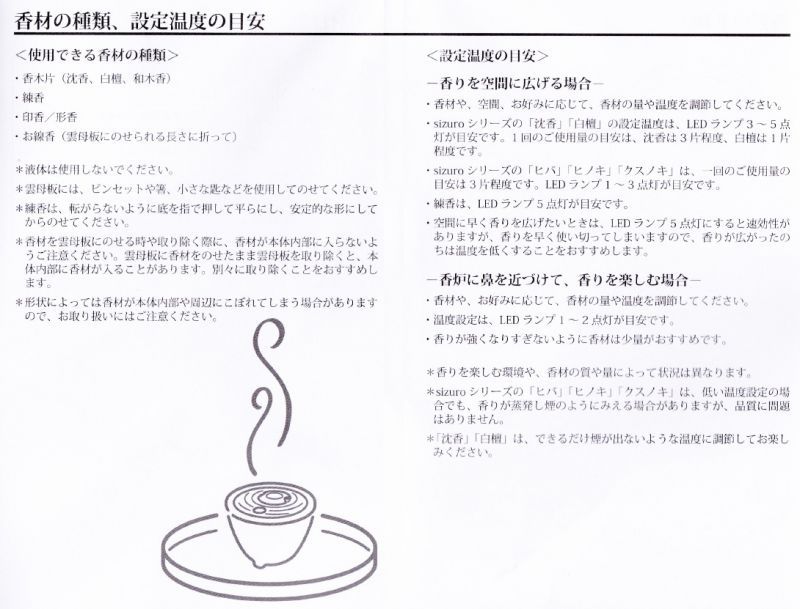 香材の種類、設定温度の目安
＜使用できる香材の種類＞
・香木片（沈香、白檀、和木香）
・練香
・印香／形香
・お線香（雲母板にのせられる長さに折って）
＊液体は使用しないでください。
＊雲母板には、ピンセットや箸、小さな匙などを使用してのせてください。
＊練香は、転がらないように底を指で押して平らにし、安定的な形にして
からのせてください。
＊香材を雲母板にのせる時や取り除く際に、香材が本体内部に入らないよ
うご注意ください。雲母板に香材をのせたまま雲母板を取り除くと、本
体内部に香材が入ることがあります。別々に取り除くことをおすすめし
ます。
＊形状によっては香材が本体内部や周辺にこぼれてしまう場合があります
ので、お取り扱いにはご注意ください。
＜設定温度の目安＞
－香りを空間に広げる場合－
・香材や、空間、お好みに応じて、香材の量や温度を調節してください。
・sizuro シリーズの「沈香」「白檀」の設定温度は、LED ランプ３～５点
灯が目安です。１回のご使用量の目安は、沈香は３片程度、白檀は１片
程度です。
・sizuro シリーズの「ヒバ」「ヒノキ」「クスノキ」は、一回のご使用量の
目安は３片程度です。LED ランプ１～３点灯が目安です。
・練香は、LED ランプ５点灯が目安です。
・空間に早く香りを広げたいときは、LED ランプ５点灯にすると速効性が
ありますが、香りを早く使い切ってしまいますので、香りが広がったの
ちは温度を低くすることをおすすめします。
－香炉に鼻を近づけて、香りを楽しむ場合－
・香材や、お好みに応じて、香材の量や温度を調節してください。
・温度設定は、LED ランプ１～２点灯が目安です。
・香りが強くなりすぎないように香材は少量がおすすめです。
＊香りを楽しむ環境や、香材の質や量によって状況は異なります。
＊sizuro シリーズの「ヒバ」「ヒノキ」「クスノキ」は、低い温度設定の場
合でも、香りが蒸発し煙のようにみえる場合がありますが、品質に問題
はありません。
＊「沈香」「白檀」は、できるだけ煙が出ないような温度に調節してお楽し
みください。